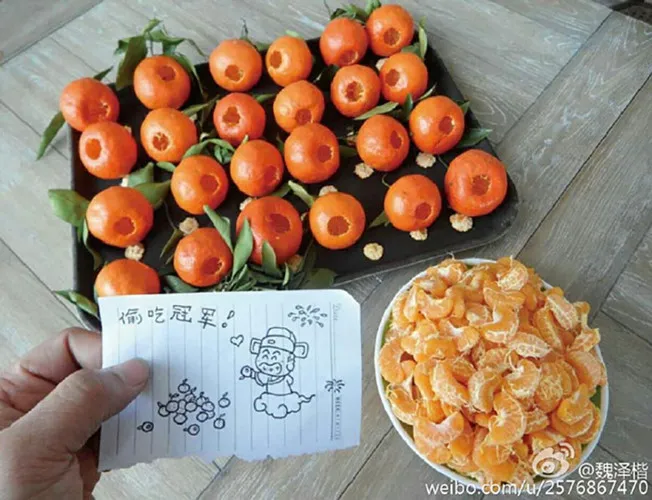 偷吃冠军!
@魏泽楷
weibo.com/u/2576867470